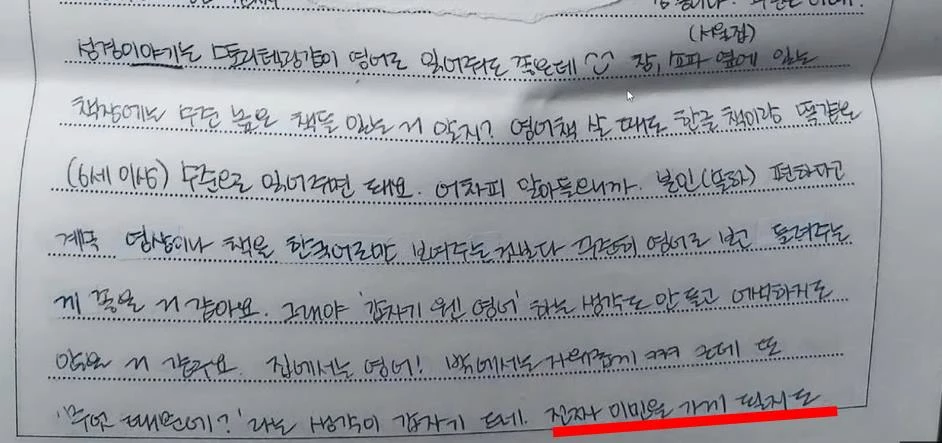 (서울집)
성경이야기는 모히텐강같이 영어로 읽어줘도 좋은데 장, 쇼파 옆에 있는
책장에는 수준 높은 책들 있는 거 알지? 영어책 살 때도 한글 책이랑 똑같은
(6세 이상) 수준으로 읽어주면 돼요. 어차피 알아들으니까. 본인(또하) 편하다고
계속 영상이나 책을 한국어로만 보여주는것보다 꾸준히 영어로 보고 들려주는
게 좋을 거 같아요. 그래야 '갑자기 웬 영어' 하는 생각도 안 들고 어색하지도
않을 거 같구요. 집에서는 영어! 밖에서는 자유롭게 ㅋㅋ 근데 또
'무엇 때문에?' 라는 생각이 갑자기 드네. 진짜 이민을 가게 될지도